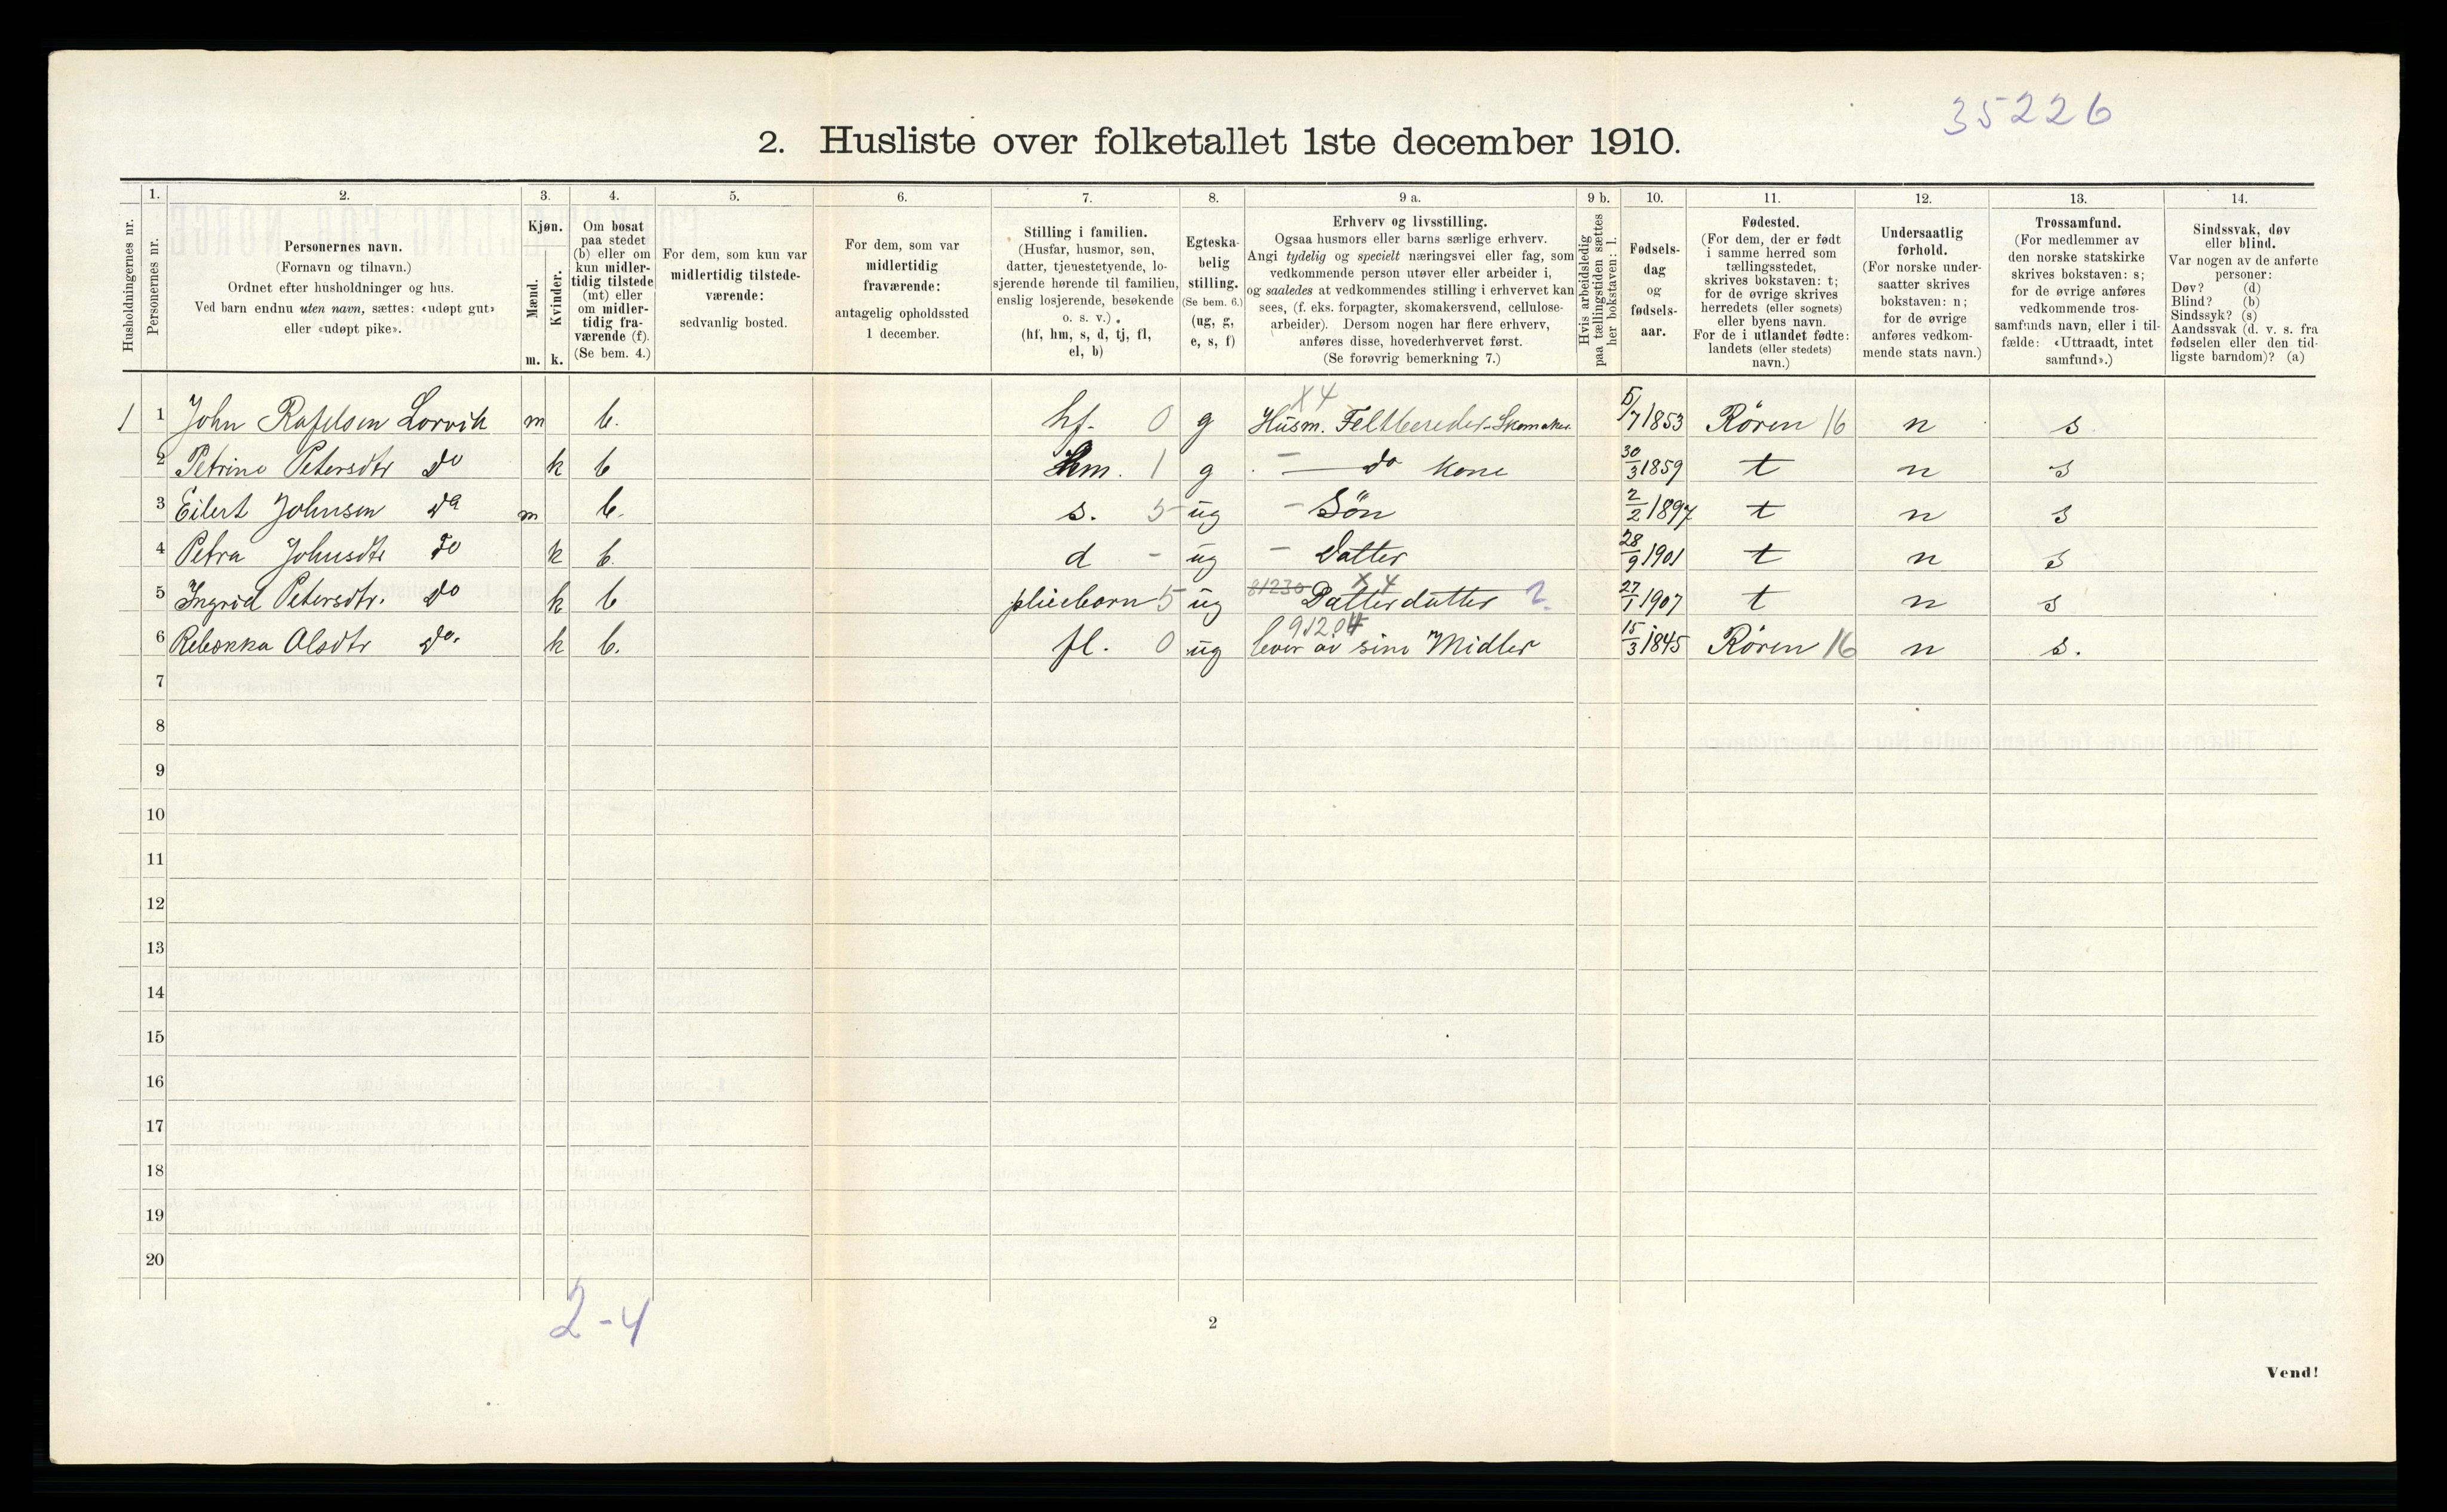 35226
2. Husliste over folketallet 1ste december 1910.
Husholdningernes nr.
1.
Personernes nr.
2.
Personernes navn.
(Fornavn og tilnavn.)
Ordnet efter husholdninger og hus.
Ved barn endnu uten navn, sættes: «udøpt gut»
eller «udøpt pike».
3.
Kjøn.
Mænd.
Kvinder.
m. k.
4.
Om bosat
paa stedet
(b) eller om
kun midler-
tidig tilstede
(mt) eller
om midler-
tidig fra-
værende (f).
(Se bem. 4.)
5.
For dem, som kun var
midlertidig tilstede-
værende:
sedvanlig bosted.
6.
For dem, som var
midlertidig
fraværende:
antagelig opholdssted
1 december.
7.
Stilling i familien.
(Husfar, husmor, søn,
datter, tjenestetyende, lo-
sjerende hørende til familien,
enslig losjerende, besøkende
o. s. v.).
(hf, hm, s, d, tj, fl,
el, b)
8.
Egteska-
belig
stilling.
(Se bem. 6.)
(ug, g,
e, s, f)
9 a.
Erhverv og livsstilling.
Ogsaa husmors eller barns særlige erhverv.
Angi tydelig og specielt næringsvei eller fag, som
vedkommende person utøver eller arbeider i,
og saaledes at vedkommendes stilling i erhvervet kan
sees, (f. eks. forpagter, skomakersvend, cellulose-
arbeider). Dersom nogen har flere erhverv,
anføres disse, hovederhvervet først.
(Se forøvrig bemerkning 7.)
9 b.
Hvis arbeidsledig
paa tællingstiden sættes
her bokstaven: l.
10.
Fødsels-
dag
og
fødsels-
aar.
11.
Fødested.
(For dem, der er født
i samme herred som
tællingsstedet,
skrives bokstaven: t;
for de øvrige skrives
herredets (eller sognets)
eller byens navn.
For de i utlandet fødte:
landets (eller stedets)
navn.)
12.
Undersaatlig
forhold.
(For norske under-
saatter skrives
bokstaven: n;
for de øvrige
anføres vedkom-
mende stats navn.)
13.
Trossamfund.
(For medlemmer av
den norske statskirke
skrives bokstaven: s;
for de øvrige anføres
vedkommende tros-
samfunds navn, eller i til-
fælde: «Uttraadt, intet
samfund».)
14.
Sindssvak, døv
eller blind.
Var nogen av de anførte
personer:
Døv? (d)
Blind? (b)
Sindssyk? (s)
Aandssvak (d. v. s. fra
fødselen eller den tid-
ligste barndom)? (a)
X4
1 1 John Rafelsen Lorvik m b. hf. 0 g Husm. Feltbereder-Skomaker 5/7 1853 Rören 16 n s
2 Petrine Petersdtr do k b hm. 1 g - do Kone 30/3 1859 t n s
3 Eilert Johnsen do m b. s. 5 ug - Sön 2/2 1897 t n s
4 Petra Johnsdtr do k b. d - ug - Datter 28/9 1901 t n s
X 4
5 Ingrid Petersdtr. do k b pliebarn 5 ug 81230 Datterdatter 2. 27/1 1907 t n s
91204
6 Rebekka Olsdtr do. k b. fl. 0 ug lever av sine Midler 15/3 1845 Rören 16 n s.
7
8
9
10
11
12
13
14
15
16
17
18
19
20
2-4
2
Vend!